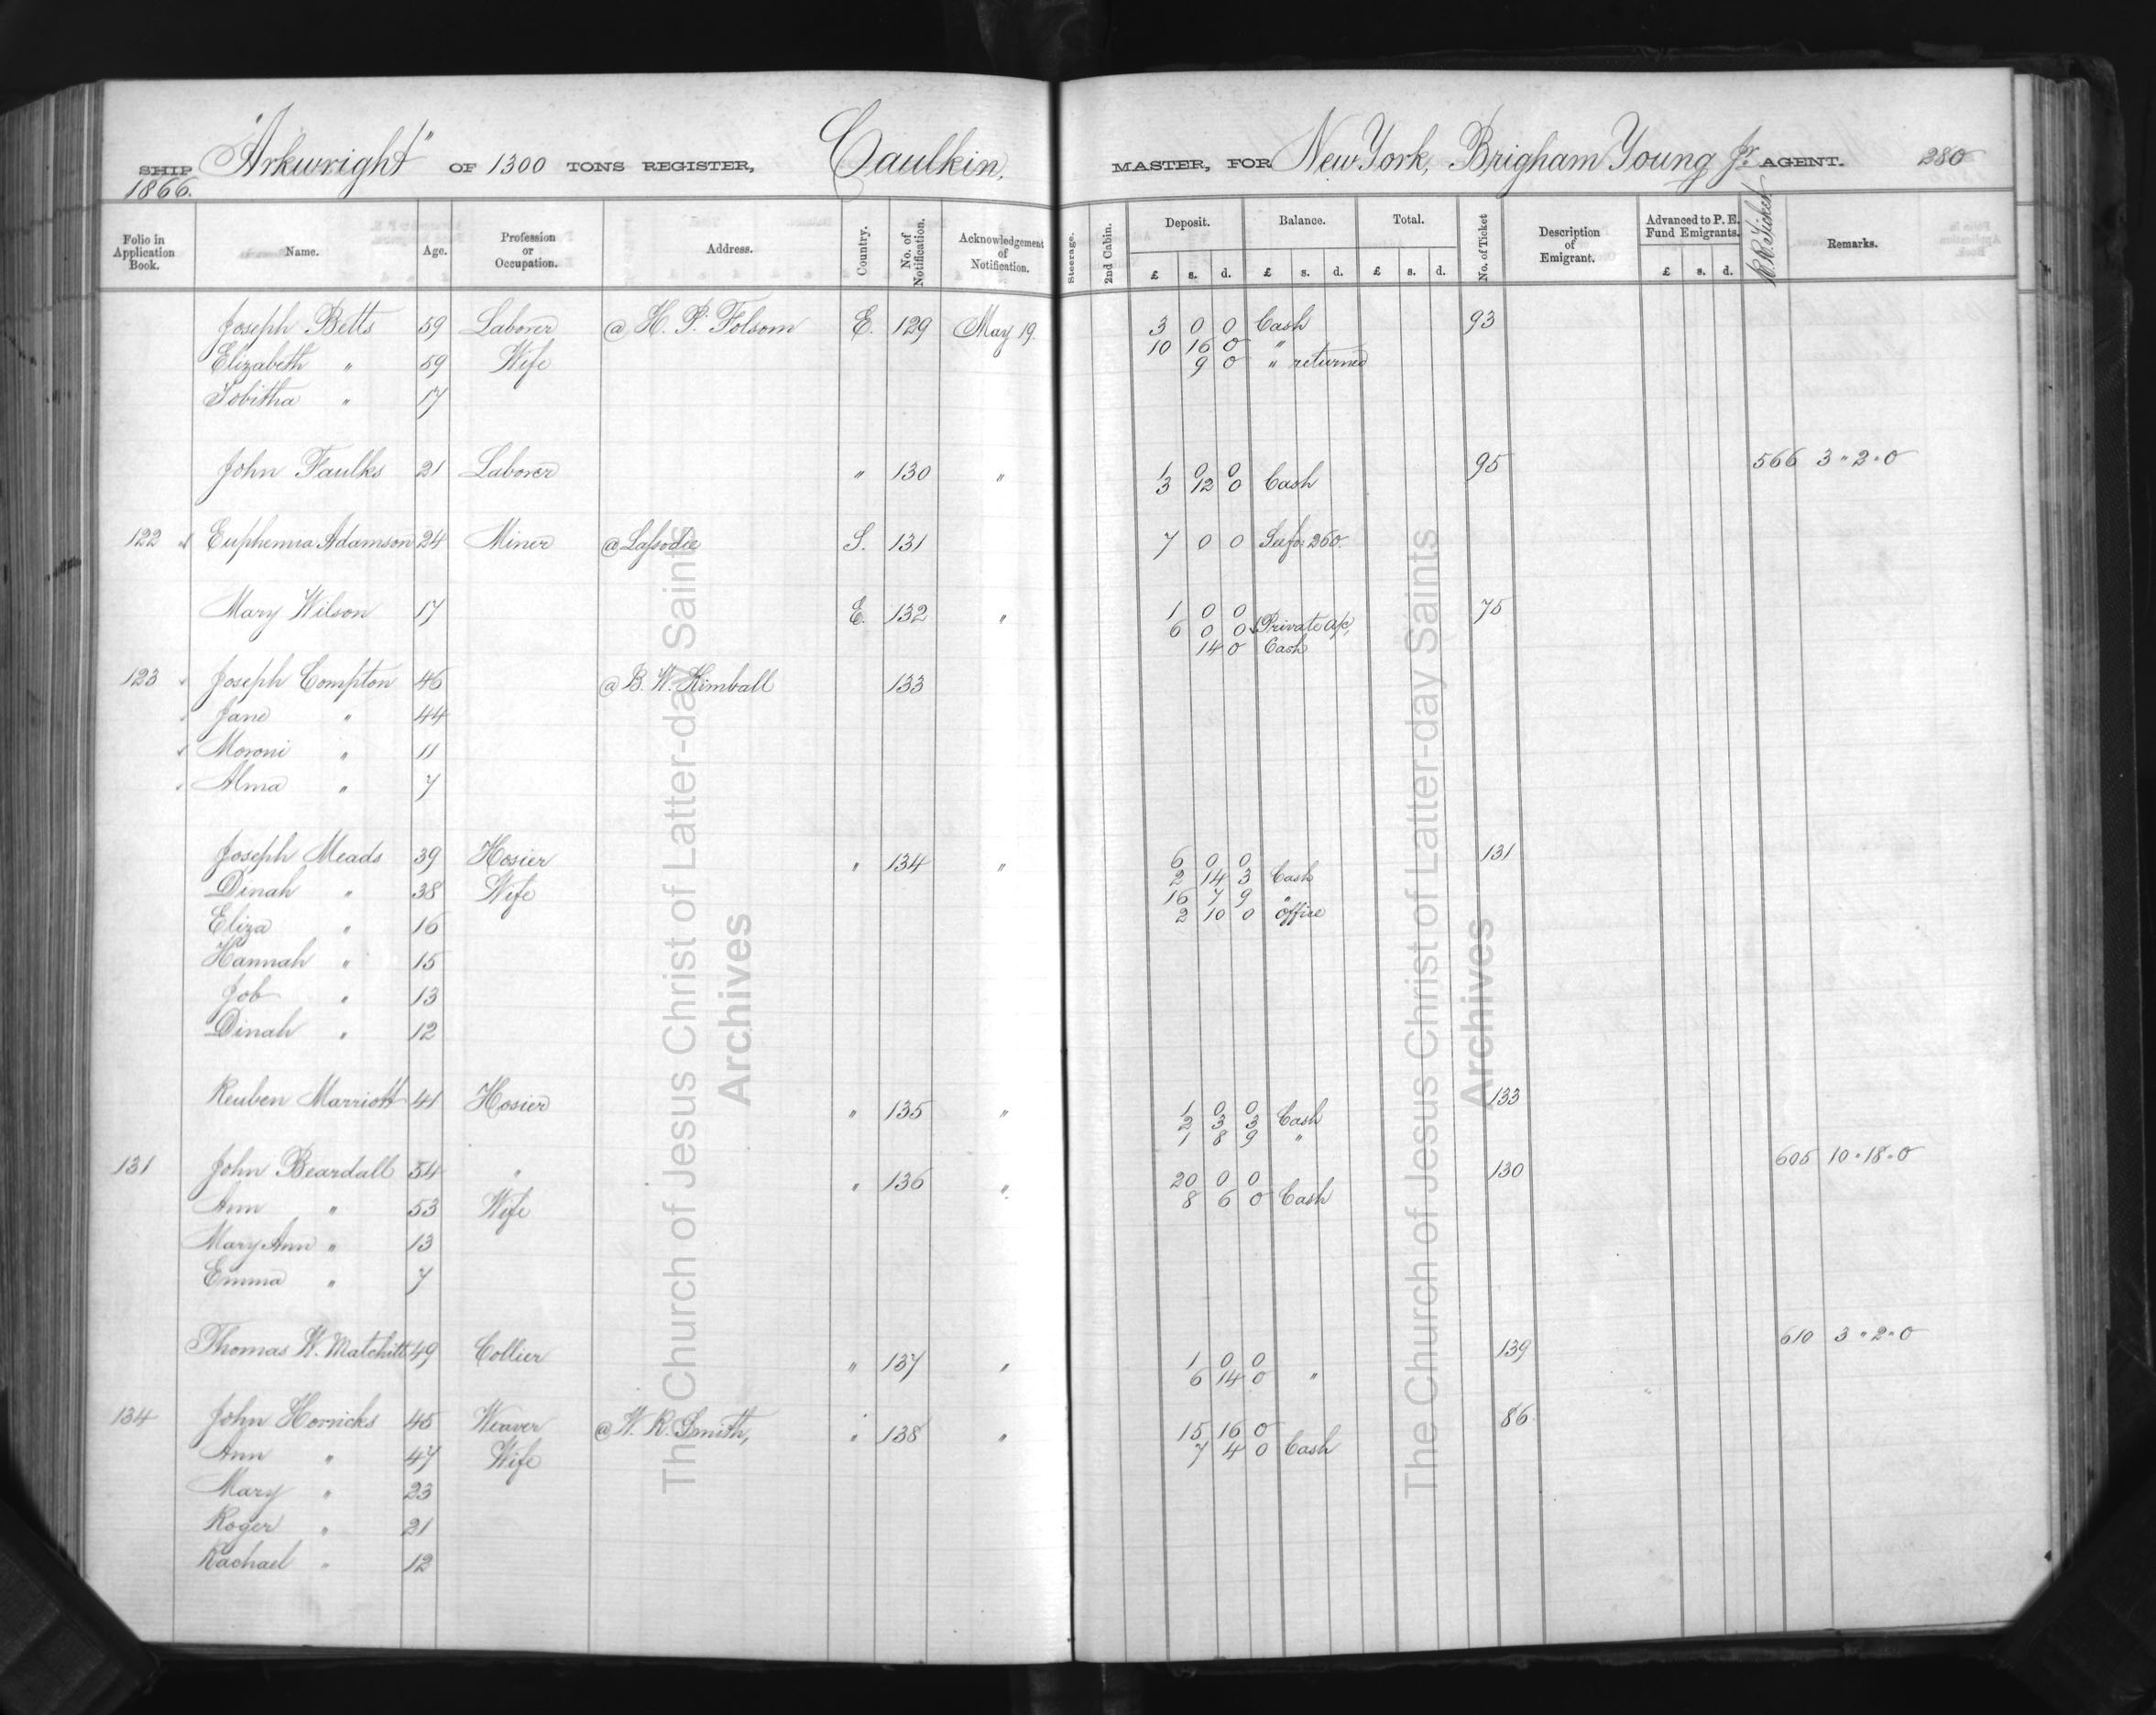 SHIP "Arkwright" OF 1300 TONS REGISTER, Caulkin, MASTER, FOR New York, Brigham Young Jr. AGENT. 280
1866.
Folio in Application Book. Name. Age. Profession or Occupation. Address. Country. No. of Notification. Acknowledgement of Notification. Steerage. 2nd Cabin. Deposit. £ s. d. Balance. £ s. d. Total. £ s. d. No. of Ticket Description of Emigrant. Advanced to P. E. Fund Emigrants. £ s. d. R.R. Ticket Remarks.
Joseph Betts 59 Laborer @ H. P. Folsom E. 129 May 19. 3 0 0 Cash 93
10 16 0 "
Elizabeth " 59 Wife 9 0 " returned
Tobitha " 17
John Faulks 21 Laborer " 130 " 1 0 0 95 566 3 " 2 " 0
3 12 0 Cash
122 Euphemia Adamson 24 Miner @ Lassodie S. 131 7 0 0 See fo: 260.
Mary Wilson 17 E. 132 " 1 0 0 75
6 0 0 Private a/c,
14 0 Cash
123 Joseph Compton 46 @ B. W. Kimball 133
Jane " 44
Moroni " 11
Alma " 7
Joseph Meads 39 Hosier " 134 " 6 0 0 131
2 14 3 Cash
Dinah " 38 Wife 16 7 9 "
2 10 0 office
Eliza " 16
Hannah " 15
Job " 13
Dinah " 12
Reuben Marriott 41 Hosier " 135 " 1 0 0 133
2 3 3 Cash
1 8 9 "
131 John Beardall 54 " " 136 " 20 0 0 130 605 10 " 18 " 0
Ann " 53 Wife 8 6 0 Cash
Mary Ann " 13
Emma " 7
Thomas W. Matchitt 49 Collier " 137 " 1 0 0 139 610 3 " 2 " 0
6 14 0 "
134 John Horricks 45 Weaver @ W. R. Smith, " 138 " 15 16 0 86
Ann " 47 Wife 7 4 0 Cash
Mary " 23
Roger " 21
Rachael " 12
The Church of Jesus Christ of Latter-day Saints
Archives
The Church of Jesus Christ of Latter-day Saints
Archives